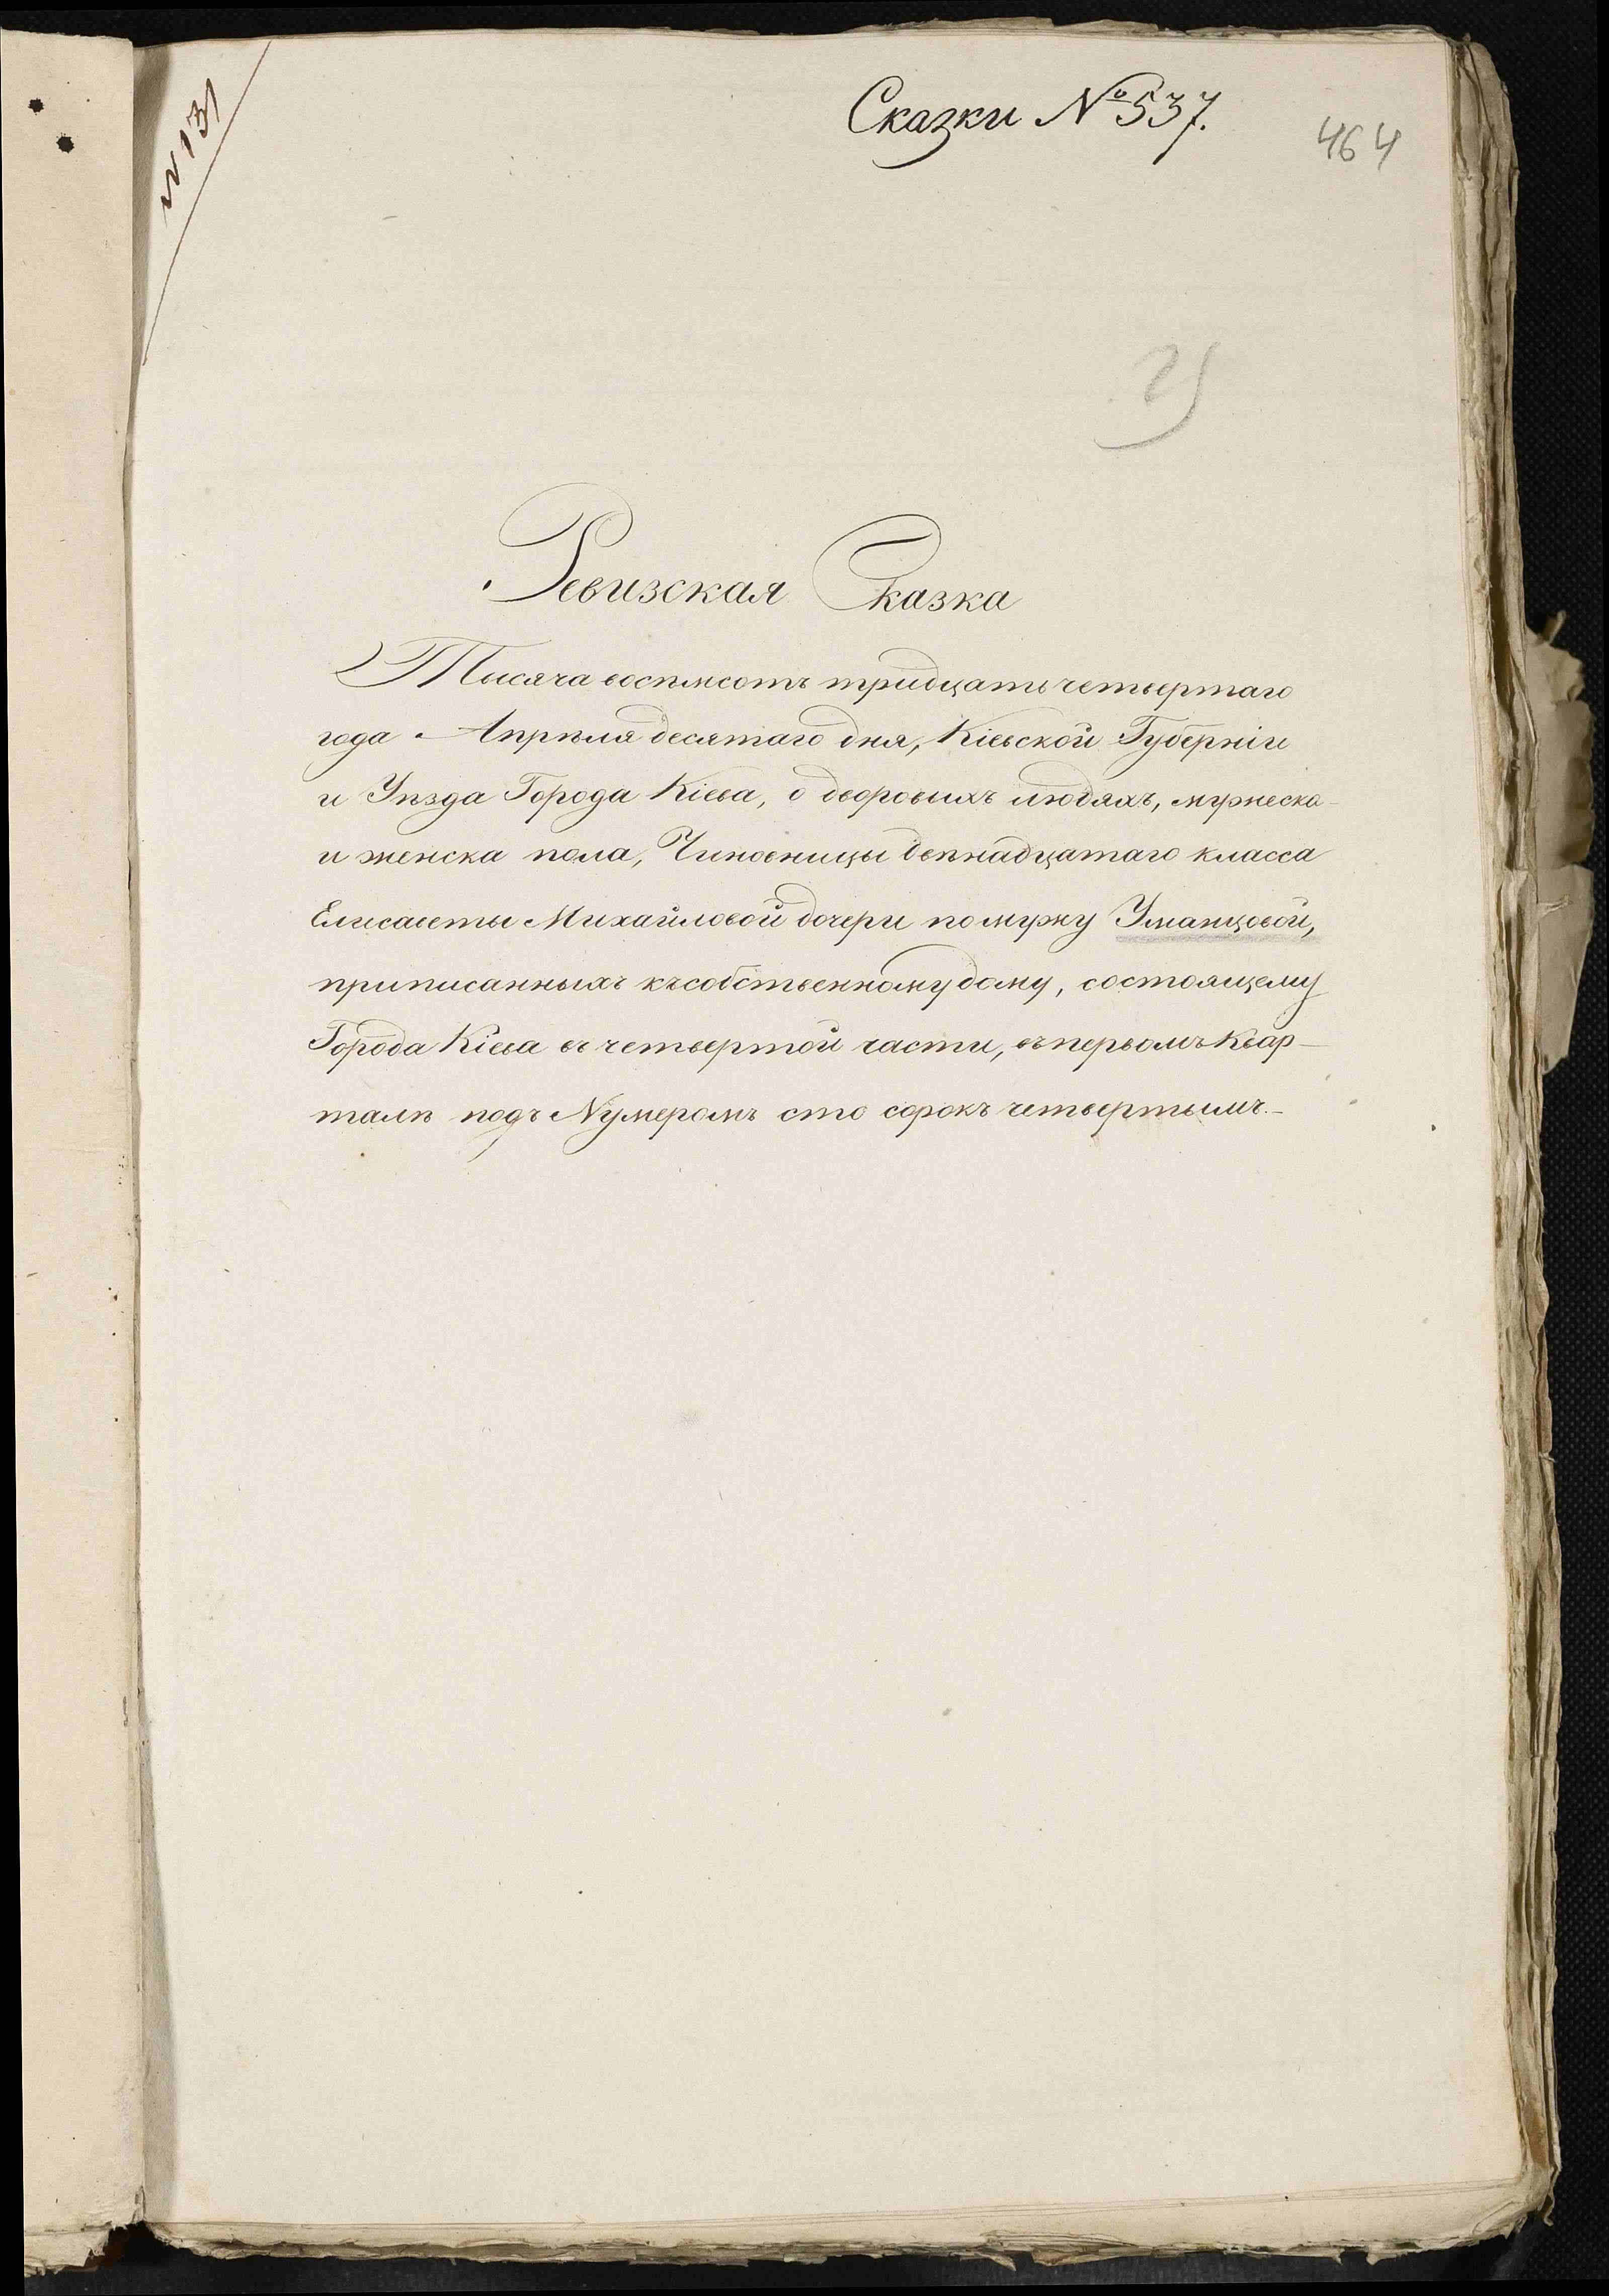 № 131
Сказки № 537.
464
У
Ревизская Сказка
Тысяча восѣмсотъ тридцать четвертаго
года Апрѣля десятаго дня, Кіевской Губерніи
и Уѣзда Города Кіева, о дворовыхъ людяхъ, мужеска
и женска пола, Чиновницы двѣнадцатаго класса
Елисаветы Михайловой дочери по мужу Уманцовой,
приписанныхъ къ собственному дому, состоящему
Города Кіева въ четвертой части, въ первомъ Квар-
талѣ подъ Nумеромъ сто сорокъ четвертымъ.-